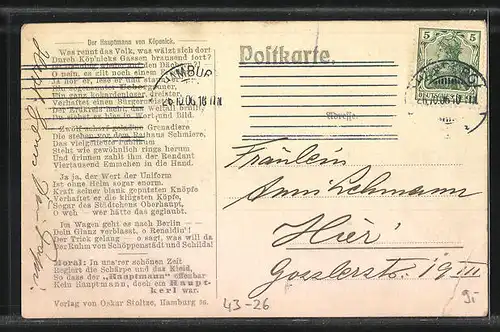 Der Hauptmann von Köpenick.
Was rennt das Volk, was wälzt sich dort
Durch Köp'nicks Gassen brausend fort?
O nein, es gilt noch einem
Ja nur er, jener er und starrer
Ein sogenannter
Um ganz hohardenloser, dreister,
Verhaftet einen Bürgermeister
Der Erdkreis heint, das Weltall brüllt,
Du siehst es hier in Wort und Bild.
Zwölf scharf geladne Grenadiere
Die stehen vor dem Rathaus Schmiere.
Das vielgetreue Publikum
Steht wie gewöhnlich rings herum
Und drinnen zahlt ihm der Rendant
Viertausend Emmchen in die Hand.
Ja ja, der Wert der Uniform
Ist ohne Helm sogar enorm.
Kraft seiner blank geputzten Knöpfe
Verhaftet er die klügsten Köpfe,
Sogar des Städtchens Oberhaupt,
O weh — wer hätte das geglaubt.
Im Wagen geht es nach Berlin —
Dein Glanz verblasst, o Renaldin'!
Der Trick gelang — o sagt, was will da
Der Ruhm von Schöppenstädt und Schilda!
Moral: In uns'rer schönen Zeit
Regiert die Schärpe und das Kleid,
So dass der „Hauptmann" offenbar
Kein Hauptmann, doch ein Haupt-
kerl war.
Verlag von Oskar Stoltze, Hamburg 36.
Postkarte.
Adresse.
HAMBUR
26.10.06.
5 5
26.10.06.
Fräulein
Anni Lehmann
Hier
Gosslerstr. 19 III
43-26
9,-